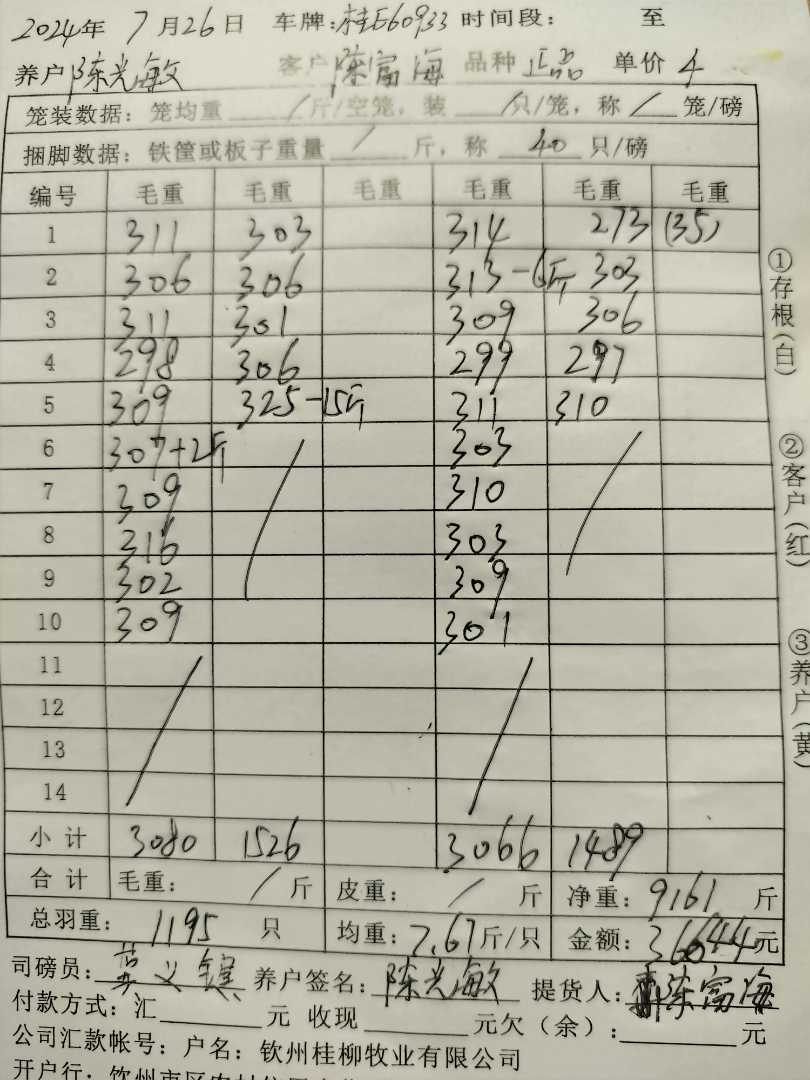 2024年 7月26日 车牌:桂E60933 时间段: 至
养户 陈光敏 客户 陈富海 品种 正品 单价 4
笼装数据: 笼均重 / 斤/空笼, 装 / 只/笼, 称 / 笼/磅
捆脚数据: 铁筐或板子重量 / 斤, 称 40 只/磅
编号 毛重 毛重 毛重 毛重 毛重 毛重
1 311 303 314 273 (35)
2 306 306 313-6斤 303
3 311 301 309 306
4 298 306 299 297
5 309 325-15斤 311 310
6 307+2斤 303
7 309 310
8 316 303
9 302 309
10 309 301
11
12
13
14
小计 3080 1526 3066 1489
合计 毛重: / 斤 皮重: / 斤 净重: 9161 斤
总羽重: 1195 只 均重: 7.67斤/只 金额: 36644元
司磅员: 义镇 养户签名: 陈光敏 提货人: 陈富海
付款方式: 汇 元 收现 元欠(余): 元
公司汇款帐号: 户名: 钦州桂柳牧业有限公司
开户行: 钦州市区农村信用
①存根(白)
②客户(红)
③养户(黄)